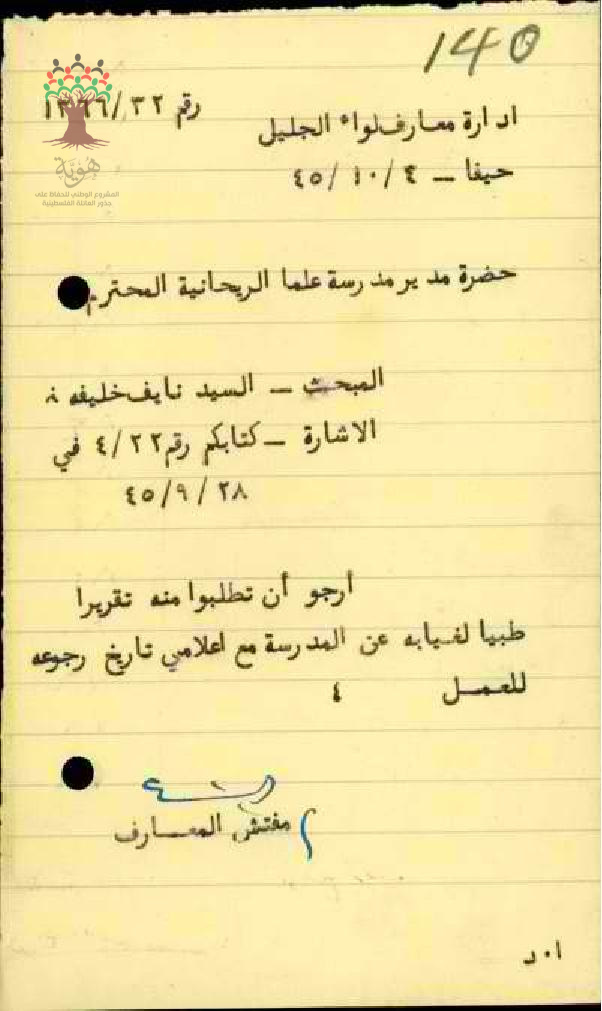 140
ادارة معارف لواء الجليل
رقم ١٣٦٦/٣٢
حيفا – ٤/١٠/٤٥
هوية
المشروع الوطني للحفاظ على
جذور العائلة الفلسطينية
حضرة مدير مدرسة علما الريحانية المحترم
المبحث – السيد نايف خليفه
الاشارة – كتابكم رقم ٤/٢٢ في
٤٥/٩/٢٨
أرجو أن تطلبوا منه تقريرا
طبيا لغيابه عن المدرسة مع اعلامي تاريخ رجوعه
للعمل ٤
مفتش المعارف
ا۰د